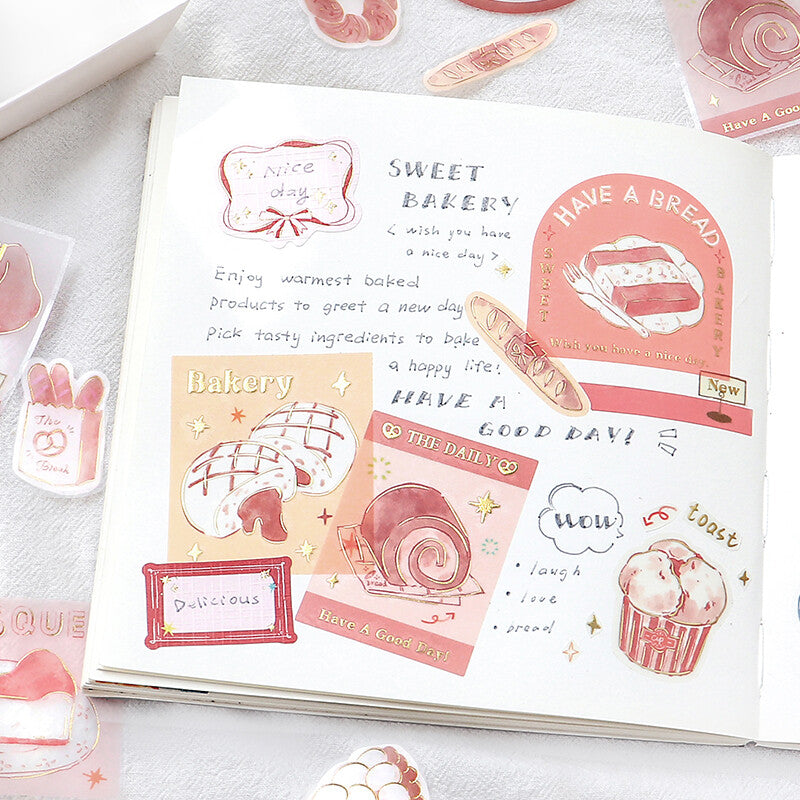 Nice
day
SWEET
BAKERY
< wish you have
a nice day >
Enjoy warmest baked
products to greet a new day
Pick tasty ingredients to bake
a happy life!
HAVE A
GOOD DAY!
HAVE A BREAD
SWEET
BAKERY
Wish you have a nice day.
New
Bakery
THE DAILY
bread
Have A Good Day!
Delicious
WOW
• laugh
• love
• bread
toast
Have A Good
SQUE